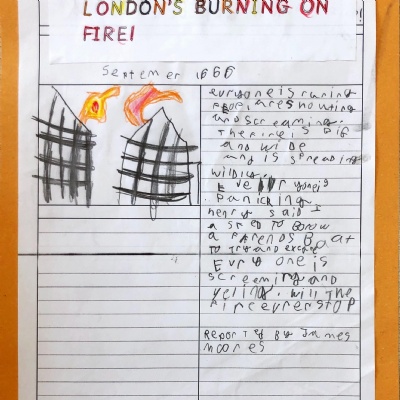 LONDON'S BURNING ON
FIRE!
September 1666
everyone is runing
PeoPl are shouting
and screaming.
The fire is Bif
and wide
and is spreading
wildly.
Eve ryoneis
Panicking.
henry said I
a sked TO Borow
a frends Boat
to try and excape
Eury one is
screeming and
yeling. will The
Fire evrer stop
Reported By James
Moores